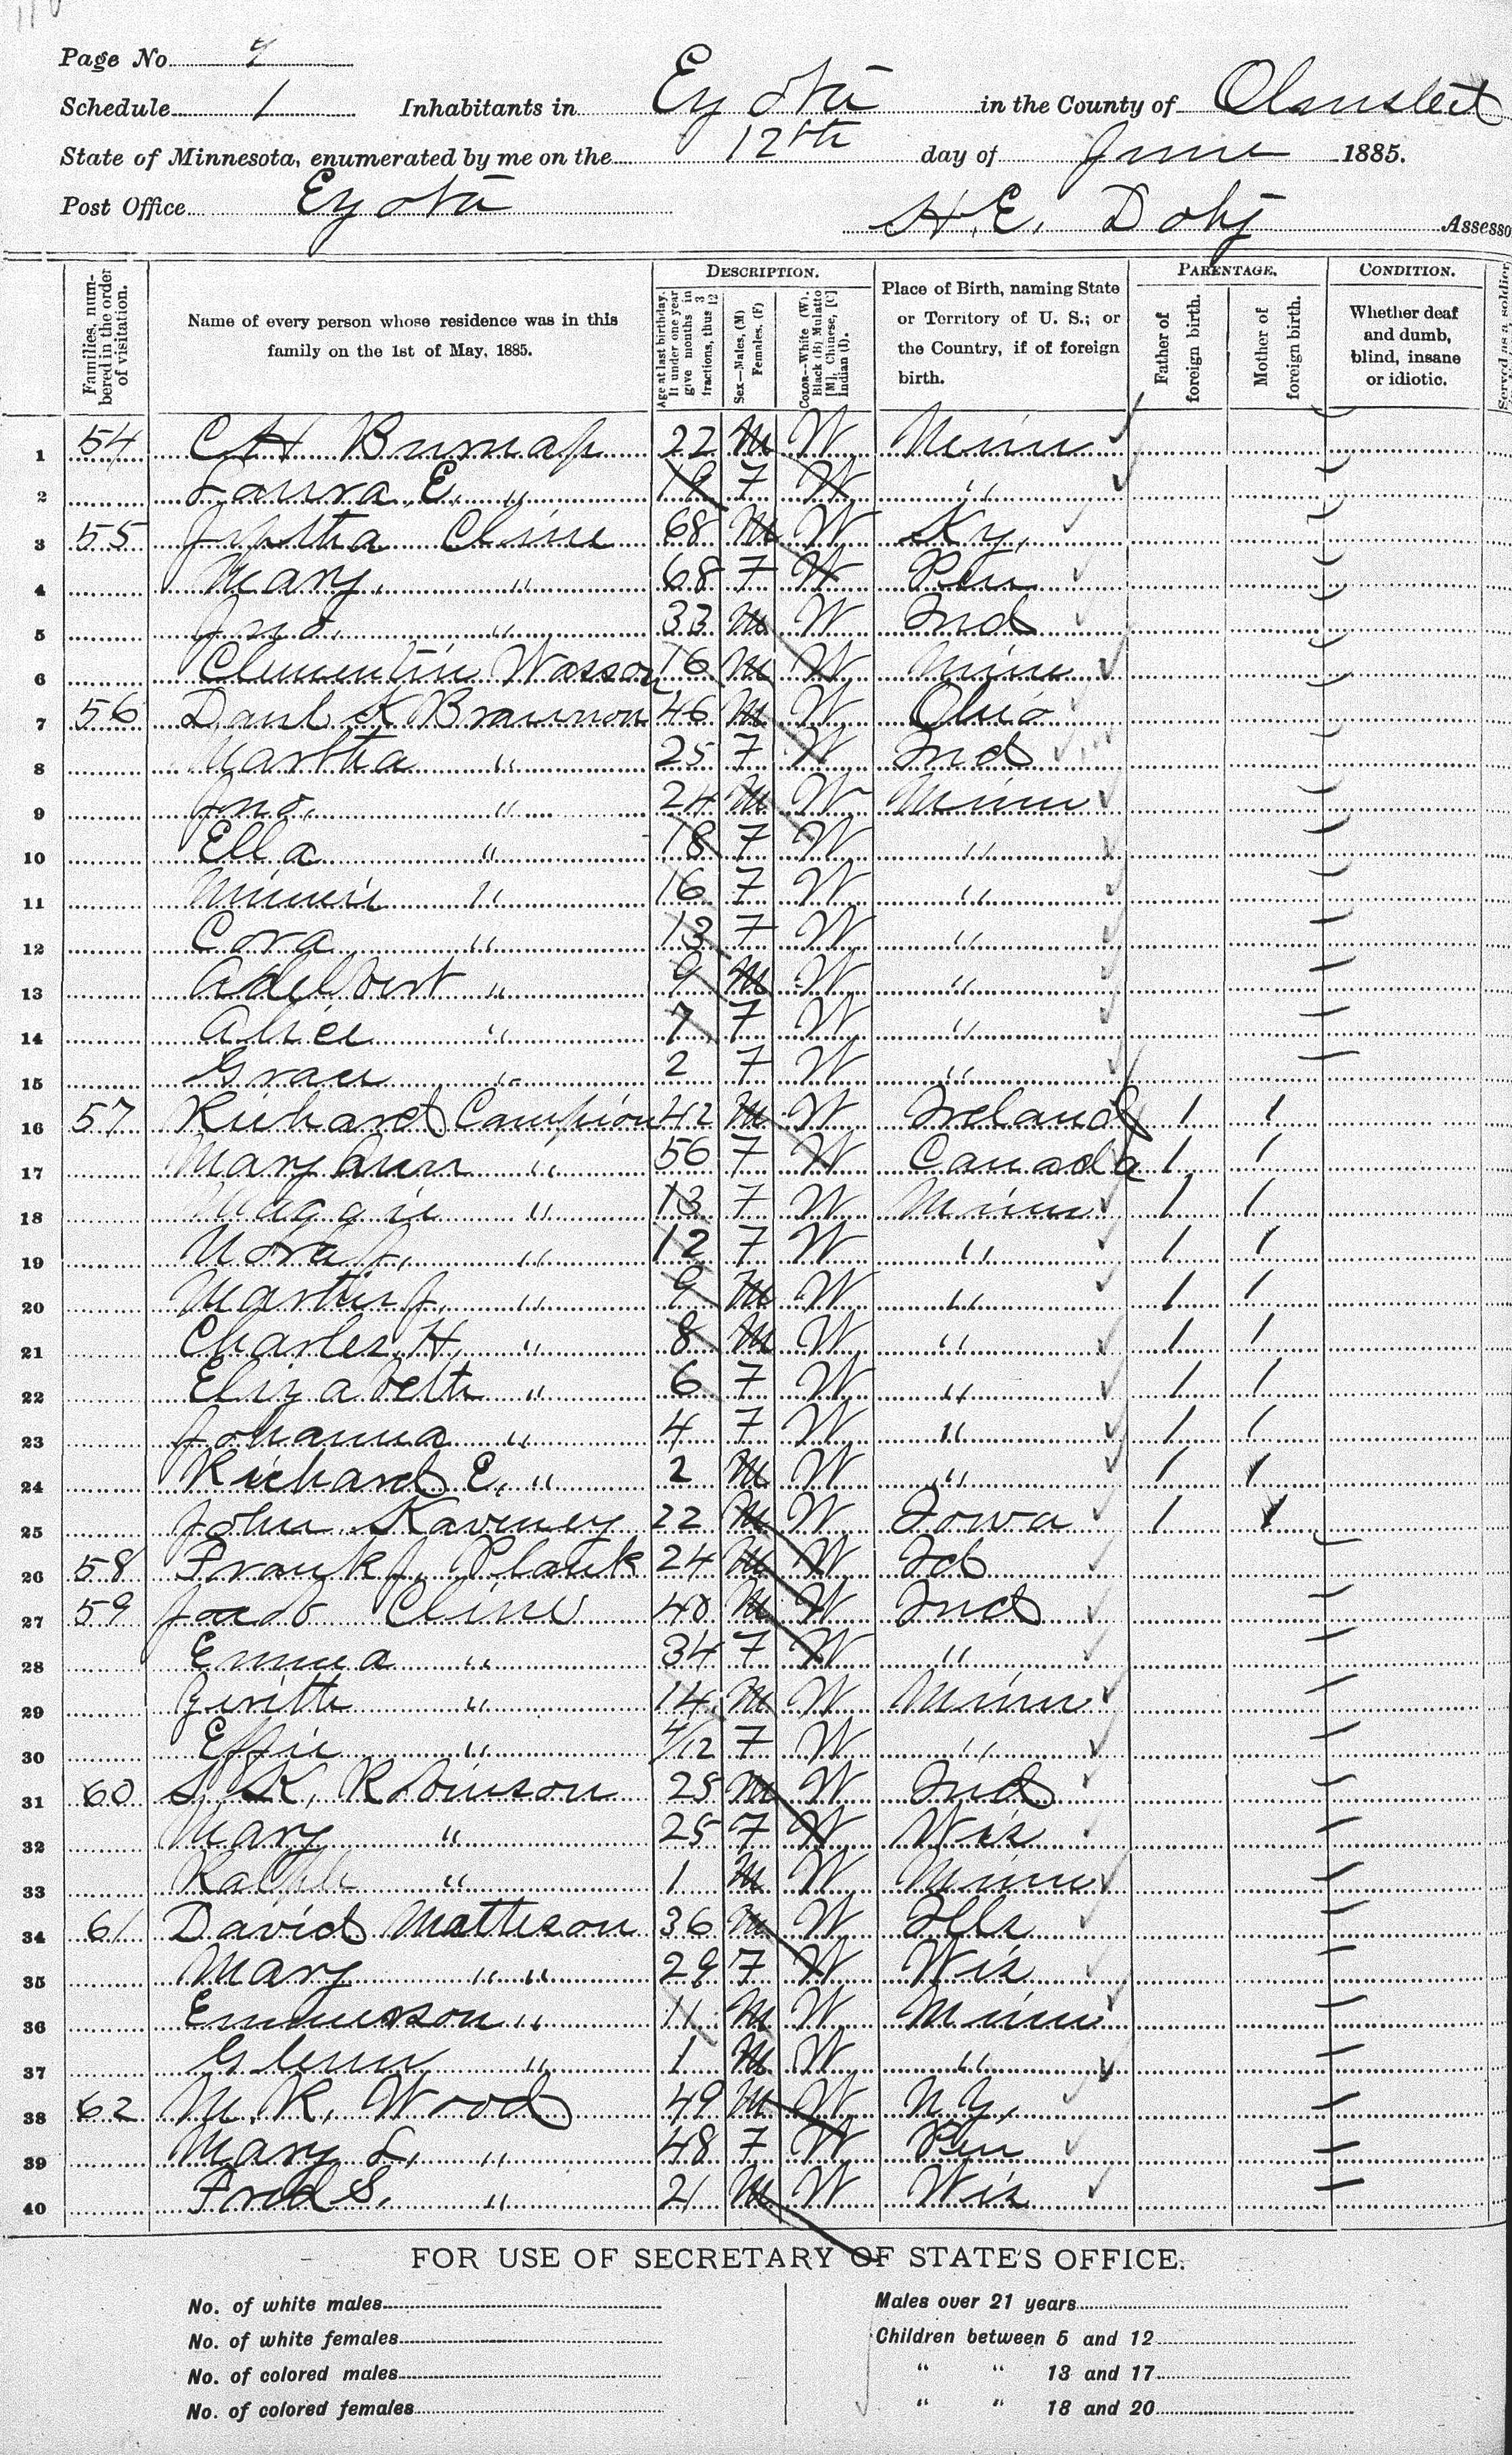 Page No. 7
Schedule 1 Inhabitants in Eyota in the County of Olmsted
State of Minnesota, enumerated by me on the 12th day of June 1885.
Post Office Eyota H. E. Doty Assesso
Families, numbered in the order of visitation.
Name of every person whose residence was in this family on the 1st of May, 1885.
DESCRIPTION.
Age at last birthday. If under one year give months in fractions, thus 3/12
Sex—Males, (M) Females, (F)
Color—White (W). Black (B) Mulatto [M], Chinese, [C] Indian (I).
Place of Birth, naming State or Territory of U. S.; or the Country, if of foreign birth.
PARENTAGE.
Father of foreign birth.
Mother of foreign birth.
CONDITION.
Whether deaf and dumb, blind, insane or idiotic.
Served as a soldier
1 54 C H Burnap 22 M W Minn
2 Laura E. " 19 F W "
3 55 Jeptha Cline 68 M W Ky.
4 Mary. " 68 F W Pen
5 Jno. " 33 M W Ind
6 Clementin Wasson 16 M W Minn
7 56 Danl K Brannon 46 M W Ohio
8 Martha " 25 F W Ind
9 Jno. " 24 M W Minn
10 Ella " 18 F W "
11 Minnie " 16 F W "
12 Cora " 13 F W "
13 Adelbert " 9 M W "
14 Alice " 7 F W "
15 Grace " 2 F W "
16 57 Richard Campion 42 M W Ireland / /
17 Mary Ann " 56 F W Canada / /
18 Maggie " 13 F W Minn / /
19 Nora J. " 12 F W " / /
20 Martin J. " 9 M W " / /
21 Charles H. " 8 M W " / /
22 Elizabeth " 6 F W " / /
23 Johanna " 4 F W " / /
24 Richard E. " 2 M W " / /
25 John Kaveney 22 M W Iowa / /
26 58 Frank J. Plank 24 M W
27 59 Jacob Cline 40 M W Ind
28 Emma " 34 F W "
29 " 14 M W Minn
30 Effie " 4/12 F W "
31 60 S. K. Robinson 25 M W Ind
32 Mary " 25 F W Wis
33 Ralph " 1 M W Minn
34 61 David Matteson 36 M W Ills
35 Mary " " 29 F W Wis
36 Emmerson " 11 M W Minn
37 Glenn " 1 M W "
38 62 M. R. Wood 49 M W N.Y.
39 Mary L. " 48 F W Pen
40 Fred S. " 21 M W Wis
FOR USE OF SECRETARY OF STATE'S OFFICE.
No. of white males Males over 21 years
No. of white females Children between 5 and 12
No. of colored males " " 13 and 17
No. of colored females " " 18 and 20